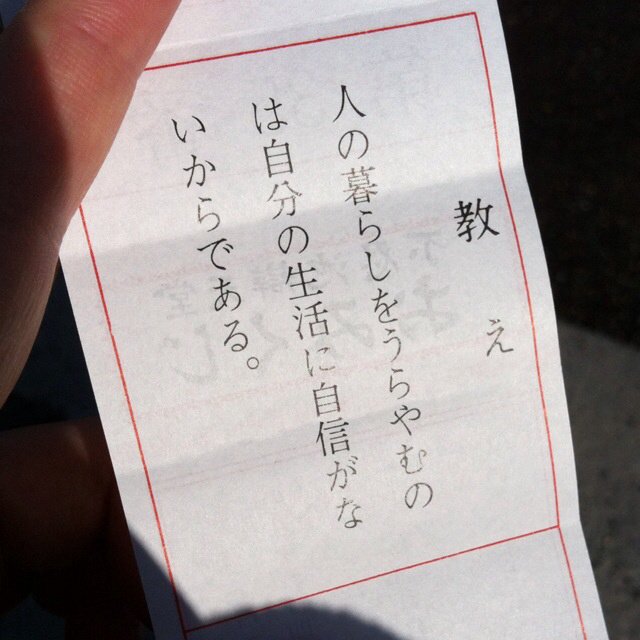 教え
人の暮らしをうらやむの
は自分の生活に自信がな
いからである。